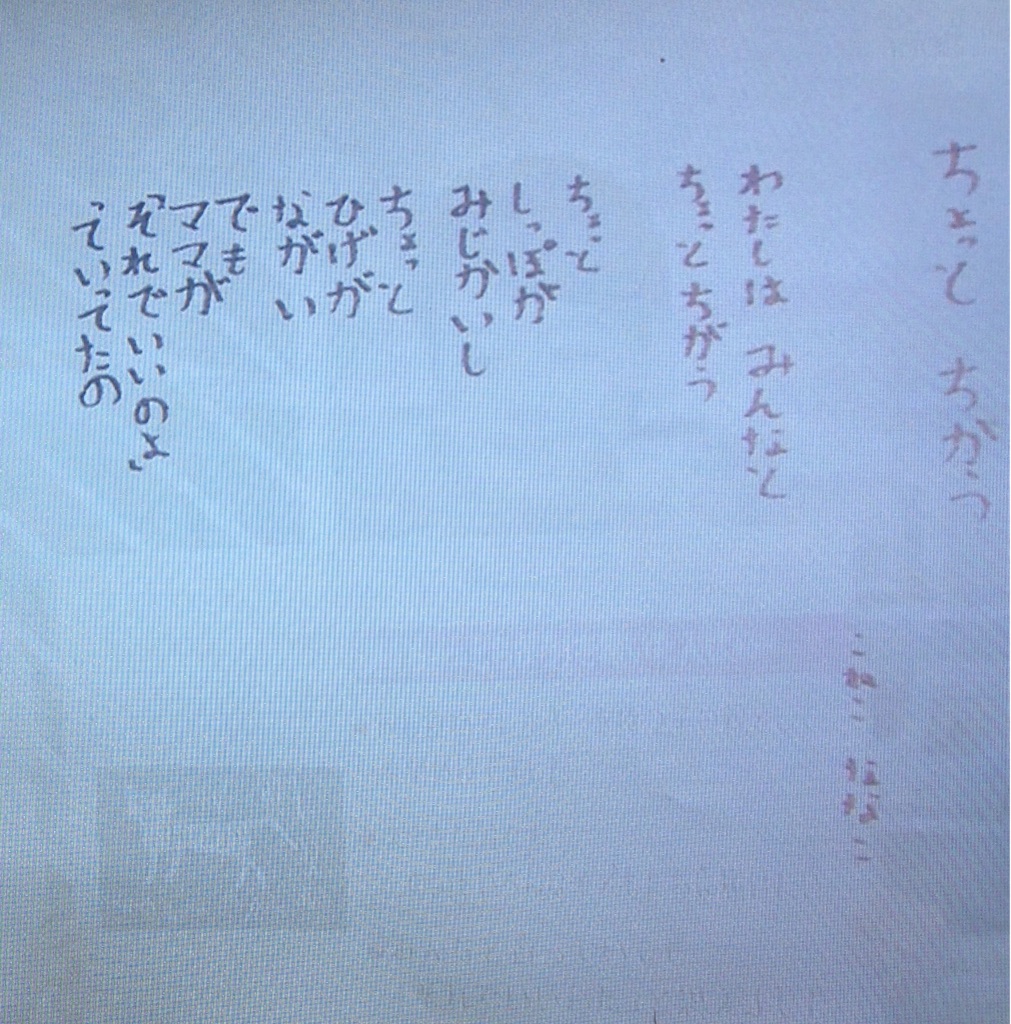 ちょっと ちがう
こねこ ななこ
わたしは みんなと
ちょっとちがう
ちょっと
しっぽが
みじかいし
ちょっと
ひげが
ながい
でも
ママが
「それでいいのよ」
っていってたの